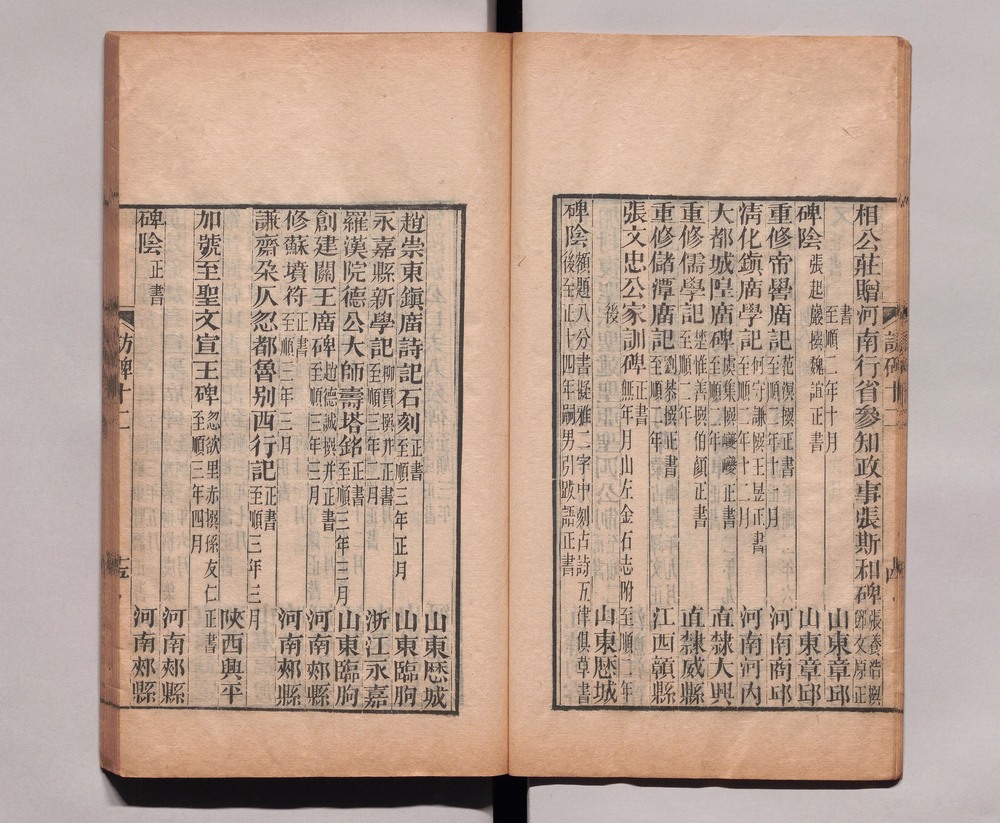 相公莊贈河南行省參知政事張斯和碑 張養浩撰 鄧文原正
書 至順二年十月 山東章邱
碑陰 張起嚴撰魏誼正書 山東章邱
重修帝嚳廣記 范淏撰正書 至順二年十一月 河南商邱
淸化鎭廣學記 何守謙撰王昱正書 至順二年十二月 河南河內
大都城隍廣碑 虞集撰 正書 至順 年 直隸大興
重修儒學記 楚惟善撰伯顏正書 至順二年 直隸威縣
重修儲潭廣記 劉恭撰正書 至順二年 江西贛縣
張文忠公家訓碑 正書 無年月山左金石志附至順二年
後 山東歷城
碑陰 額題八分書擬雅二字中刻古詩五律俱草書 後至正十四年嗣男引跋語正書
訪碑十二
山東歷城
趙崇東鎭廣詩記石刻 正書 至順三年正月 山東臨朐
永嘉縣新學記 柳貫撰并正書 至順三年二月 浙江永嘉
羅漢院德公大師壽塔銘 正書 至順三年三月 山東臨朐
創建關王廣碑 趙德誠撰并正書 至順三年三月 河南郟縣
修蘇墳符 正書 至順三年三月 河南郟縣
謙齋朶仄忽都魯别西行記 正書 至順三年三月
陝西興平
加號至聖文宣王碑 忽欲里赤撰孫友仁正書 至順三年四月
河南郟縣
碑陰 正書 河南郟縣
訪碑十二